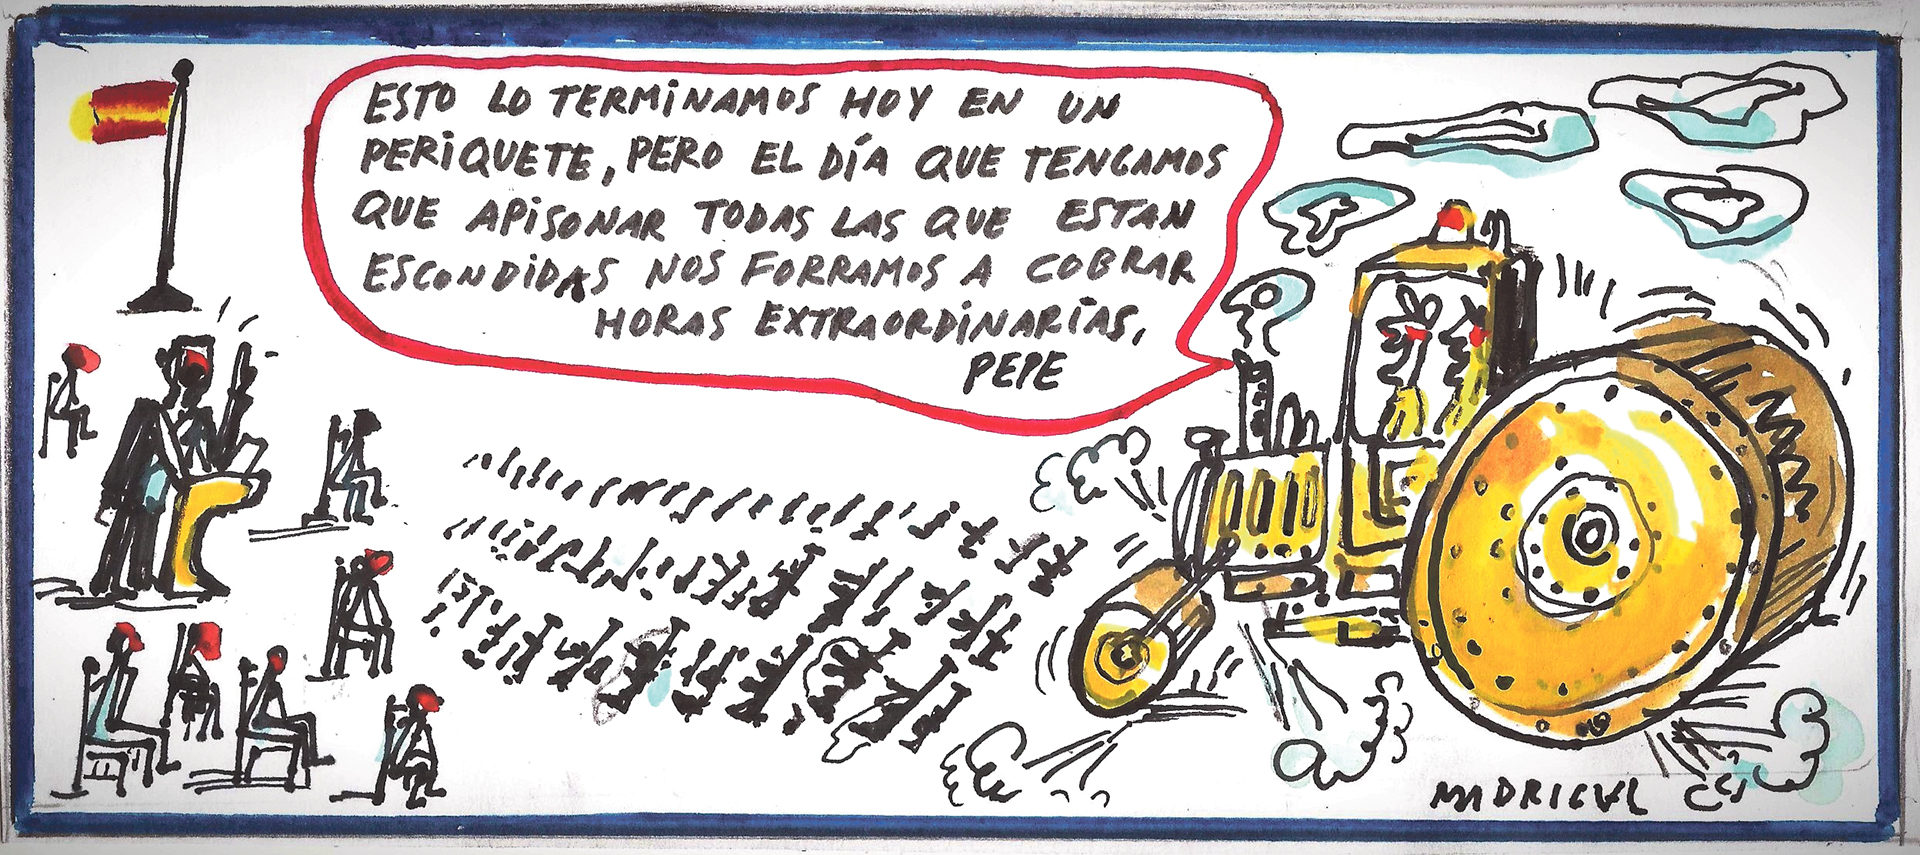 ESTO LO TERMINAMOS HOY EN UN
PERIQUETE, PERO EL DÍA QUE TENGAMOS
QUE APISONAR TODAS LAS QUE ESTAN
ESCONDIDAS NOS FORRAMOS A COBRAR
HORAS EXTRAORDINARIAS,
PEPE
MADRIGAL